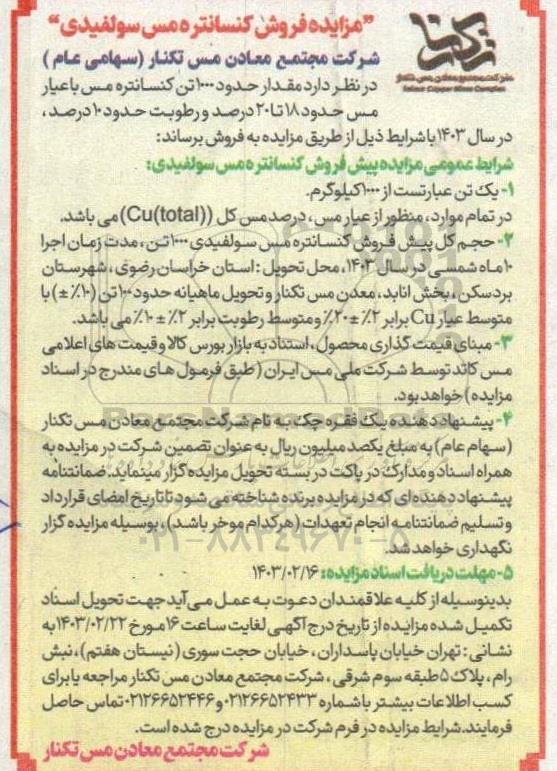 "مزایده فروش کنسانتره مس سولفیدی"
شرکت مجتمع معادن مس تکنار (سهامی عام)
در نظر دارد مقدار حدود ۱۰۰۰ تن کنسانتره مس با عیار
مس حدود ۱۸ تا ۲۰ درصد و رطوبت حدود ۱۰ درصد ،
در سال ۱۴۰۳ با شرایط ذیل از طریق مزایده به فروش برساند:
شرایط عمومی مزایده پیش فروش کنسانتره مس سولفیدی:
۱- یک تن عبارتست از ۱۰۰۰کیلوگرم.
در تمام موارد، منظور از عیار مس ، درصد مس کل ((Cu(total) می باشد.
۲- حجم کل پیش فروش کنسانتره مس سولفیدی ۱۰۰۰ تن ، مدت زمان اجرا
۱۰ ماه شمسی در سال ۱۴۰۳، محل تحویل : استان خراسان رضوی ، شهرستان
بردسکن ، بخش انابد ، معدن مس تکنار و تحویل ماهیانه حدود ۱۰۰ تن (۱۰٪ ±) با
متوسط عیار Cu برابر ۲٪ ± ۲۰٪ و متوسط رطوبت برابر ۲٪ ± ۱۰٪ می باشد.
۳- مبنای قیمت گذاری محصول ، استناد به بازار بورس کالا و قیمت های اعلامی
مس کاتد توسط شرکت ملی مس ایران (طبق فرمول های مندرج در اسناد
مزایده) خواهد بود.
۴- پیشنهاد دهنده یک فقره چک به نام شرکت مجتمع معادن مس تکنار
(سهام عام) به مبلغ یکصد میلیون ریال به عنوان تضمین شرکت در مزایده به
همراه اسناد و مدارک در پاکت در بسته تحویل مزایده گزار مینماید. ضمانتنامه
پیشنهاد دهنده ای که در مزایده برنده شناخته می شود تا تاریخ امضای قرارداد
و تسلیم ضمانتنامه انجام تعهدات (هر کدام موخر باشد) ، بوسیله مزایده گزار
نگهداری خواهد شد.
۵- مهلت دریافت اسناد مزایده: ۱۴۰۳/۰۲/۱۶
بدینوسیله از کلیه علاقمندان دعوت به عمل می آید جهت تحویل اسناد
تکمیل شده مزایده از تاریخ درج آگهی لغایت ساعت ۱۶ مورخ ۱۴۰۳/۰۲/۲۲ به
نشانی : تهران خیابان پاسداران ، خیابان حجت سوری (نیستان هفتم) ، نبش
رام ، پلاک ۵ طبقه سوم شرقی ، شرکت مجتمع معادن مس تکنار مراجعه یا برای
کسب اطلاعات بیشتر با شماره ۰۲۱۲۶۶۵۲۴۳۳ و ۰۲۱۲۶۶۵۲۴۴۶ تماس حاصل
فرمایند. شرایط مزایده در فرم شرکت در مزایده درج شده است.
شرکت مجتمع معادن مس تکنار
تکنار
شرکت مجتمع معادن مس تکنار
Taknar Copper Mines Complex
ParsNamadData
۰۲۱-۸۸۳۴۹۶۷۰-۵